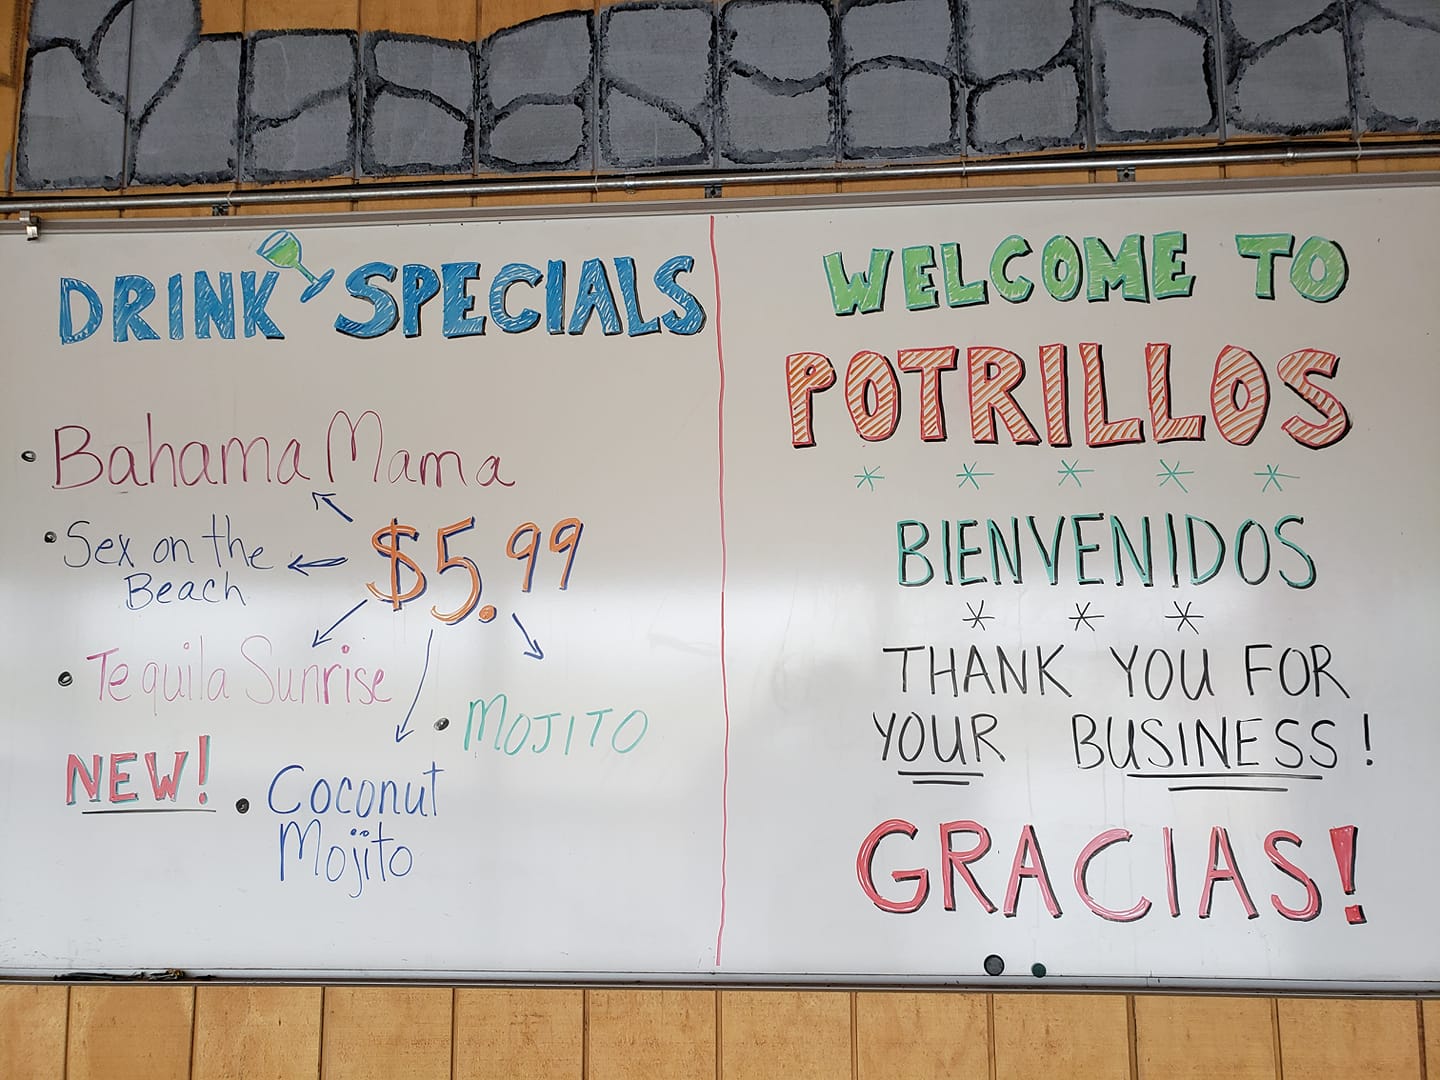 DRINK SPECIALS
• Bahama Mama
• Sex on the
Beach
$5.99
• Tequila Sunrise
• MOJITO
NEW! • Coconut
Mojito
WELCOME TO
POTRILLOS
* * * * *
BIENVENIDOS
* * *
THANK YOU FOR
YOUR BUSINESS!
GRACIAS!